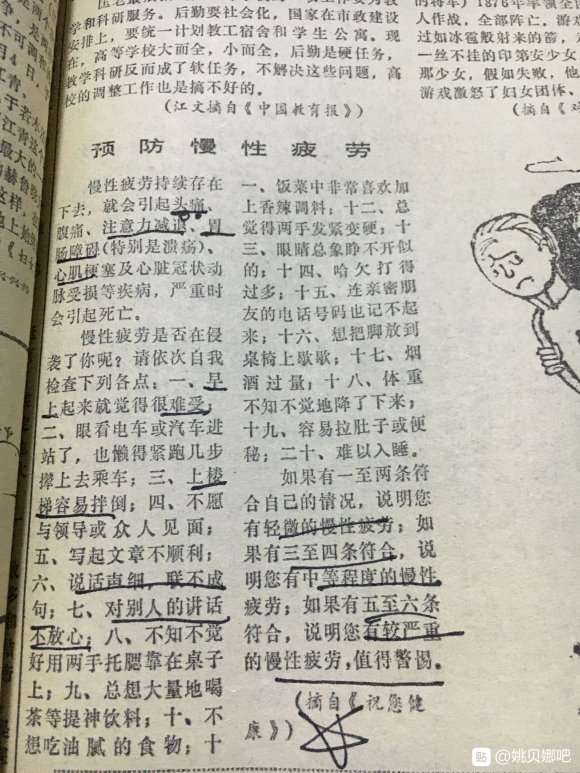 学和科研服务。后勤要社会化，国家在市政建设
安排上，要统一计划教工宿舍和学生公寓。现
在，高等学校大而全，小而全，后勤是硬任务，
教学科研反而成了软任务，不解决这些问题，高
校的调整工作也是搞不好的。
（江文摘自《中国教育报》）
1876年率领全
人作战，全部阵亡。游
过如冰雹般射来的箭，
一丝不挂的印第安少女
那少女，假如失败，他
游戏激怒了妇女团体、
（摘自《
预防慢性疲劳
慢性疲劳持续存在
下去，就会引起头痛、
腹痛、注意力减退、胃
肠障碍（特别是溃疡）、
心肌梗塞及心脏冠状动
脉受损等疾病，严重时
会引起死亡。
慢性疲劳是否在侵
袭了你呢？请依次自我
检查下列各点：一、早
上起来就觉得很难受；
二、眼看电车或汽车进
站了，也懒得紧跑几步
撵上去乘车；三、上楼
梯容易拌倒；四、不愿
与领导或众人见面；
五、写起文章不顺利；
六、说话声细，联不成
句；七、对别人的讲话
不放心；八、不知不觉
好用两手托腮靠在桌子
上；九、总想大量地喝
茶等提神饮料；十、不
想吃油腻的食物；十
一、饭菜中非常喜欢加
上香辣调料；十二、总
觉得两手发紧变硬；十
三、眼睛总象睁不开似
的；十四、哈欠打得
过多；十五、连亲密朋
友的电话号码也记不起
来；十六、想把脚放到
桌椅上歇歇；十七、烟
酒过量；十八、体重
不知不觉地降了下来；
十九、容易拉肚子或便
秘；二十、难以入睡。
如果有一至两条符
合自己的情况，说明您
有轻微的慢性疲劳；如
果有三至四条符合，说
明您有中等程度的慢性
疲劳；如果有五至六条
符合，说明您有较严重
的慢性疲劳，值得警惕。
（摘自《祝您健
康》）
贴 @姚贝娜吧